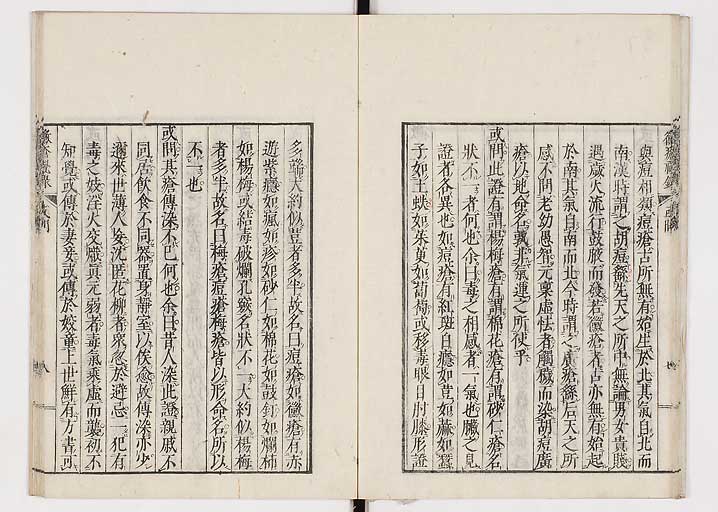 與痘相類痘瘡古所無有始生於北其氣自北而
南漢時謂之胡痘繇先天之所中無論男女貴賤
遇歲火流行鼓腋而發若黴瘡者古亦無有始起
於南其氣自南而北今時謂之廣瘡繇后天之所
感不問老幼愚智元稟虛怯者觸穢而染胡痘廣
瘡以地命名孰非氣運之所使乎
或問此證有謂楊梅瘡有謂棉花瘡有謂砂仁瘡名
狀不一者何也余曰毒之相感者一氣也臟之見
證者各異也如痘瘡有紅斑白癮如豆如藤如蠶
子如土蛺如朱萸如葡萄或移毒眼目肘膝形證
多端大約似豈者多半故名曰痘瘡如黴瘡有赤
遊紫癮如瘋如疹如砂仁如棉花如鼓釘如爛柿
如楊梅或結毒破爛孔竅名狀不一大約似楊梅
者多半故名曰梅瘡痘瘡梅瘡皆以形命名所以
不一也
或問其瘡傳染不已何也余曰昔人染此證親戚不
同居飲食不同器置身靜室以俟愈故傳染亦少
邇來世薄人妄沈匿花柳者衆忽於避忌一犯有
毒之妓淫火交熾真元弱者毒氣乘虛而襲初不
知覺或傳於妻妾或傳於姣童上世鮮有方書可